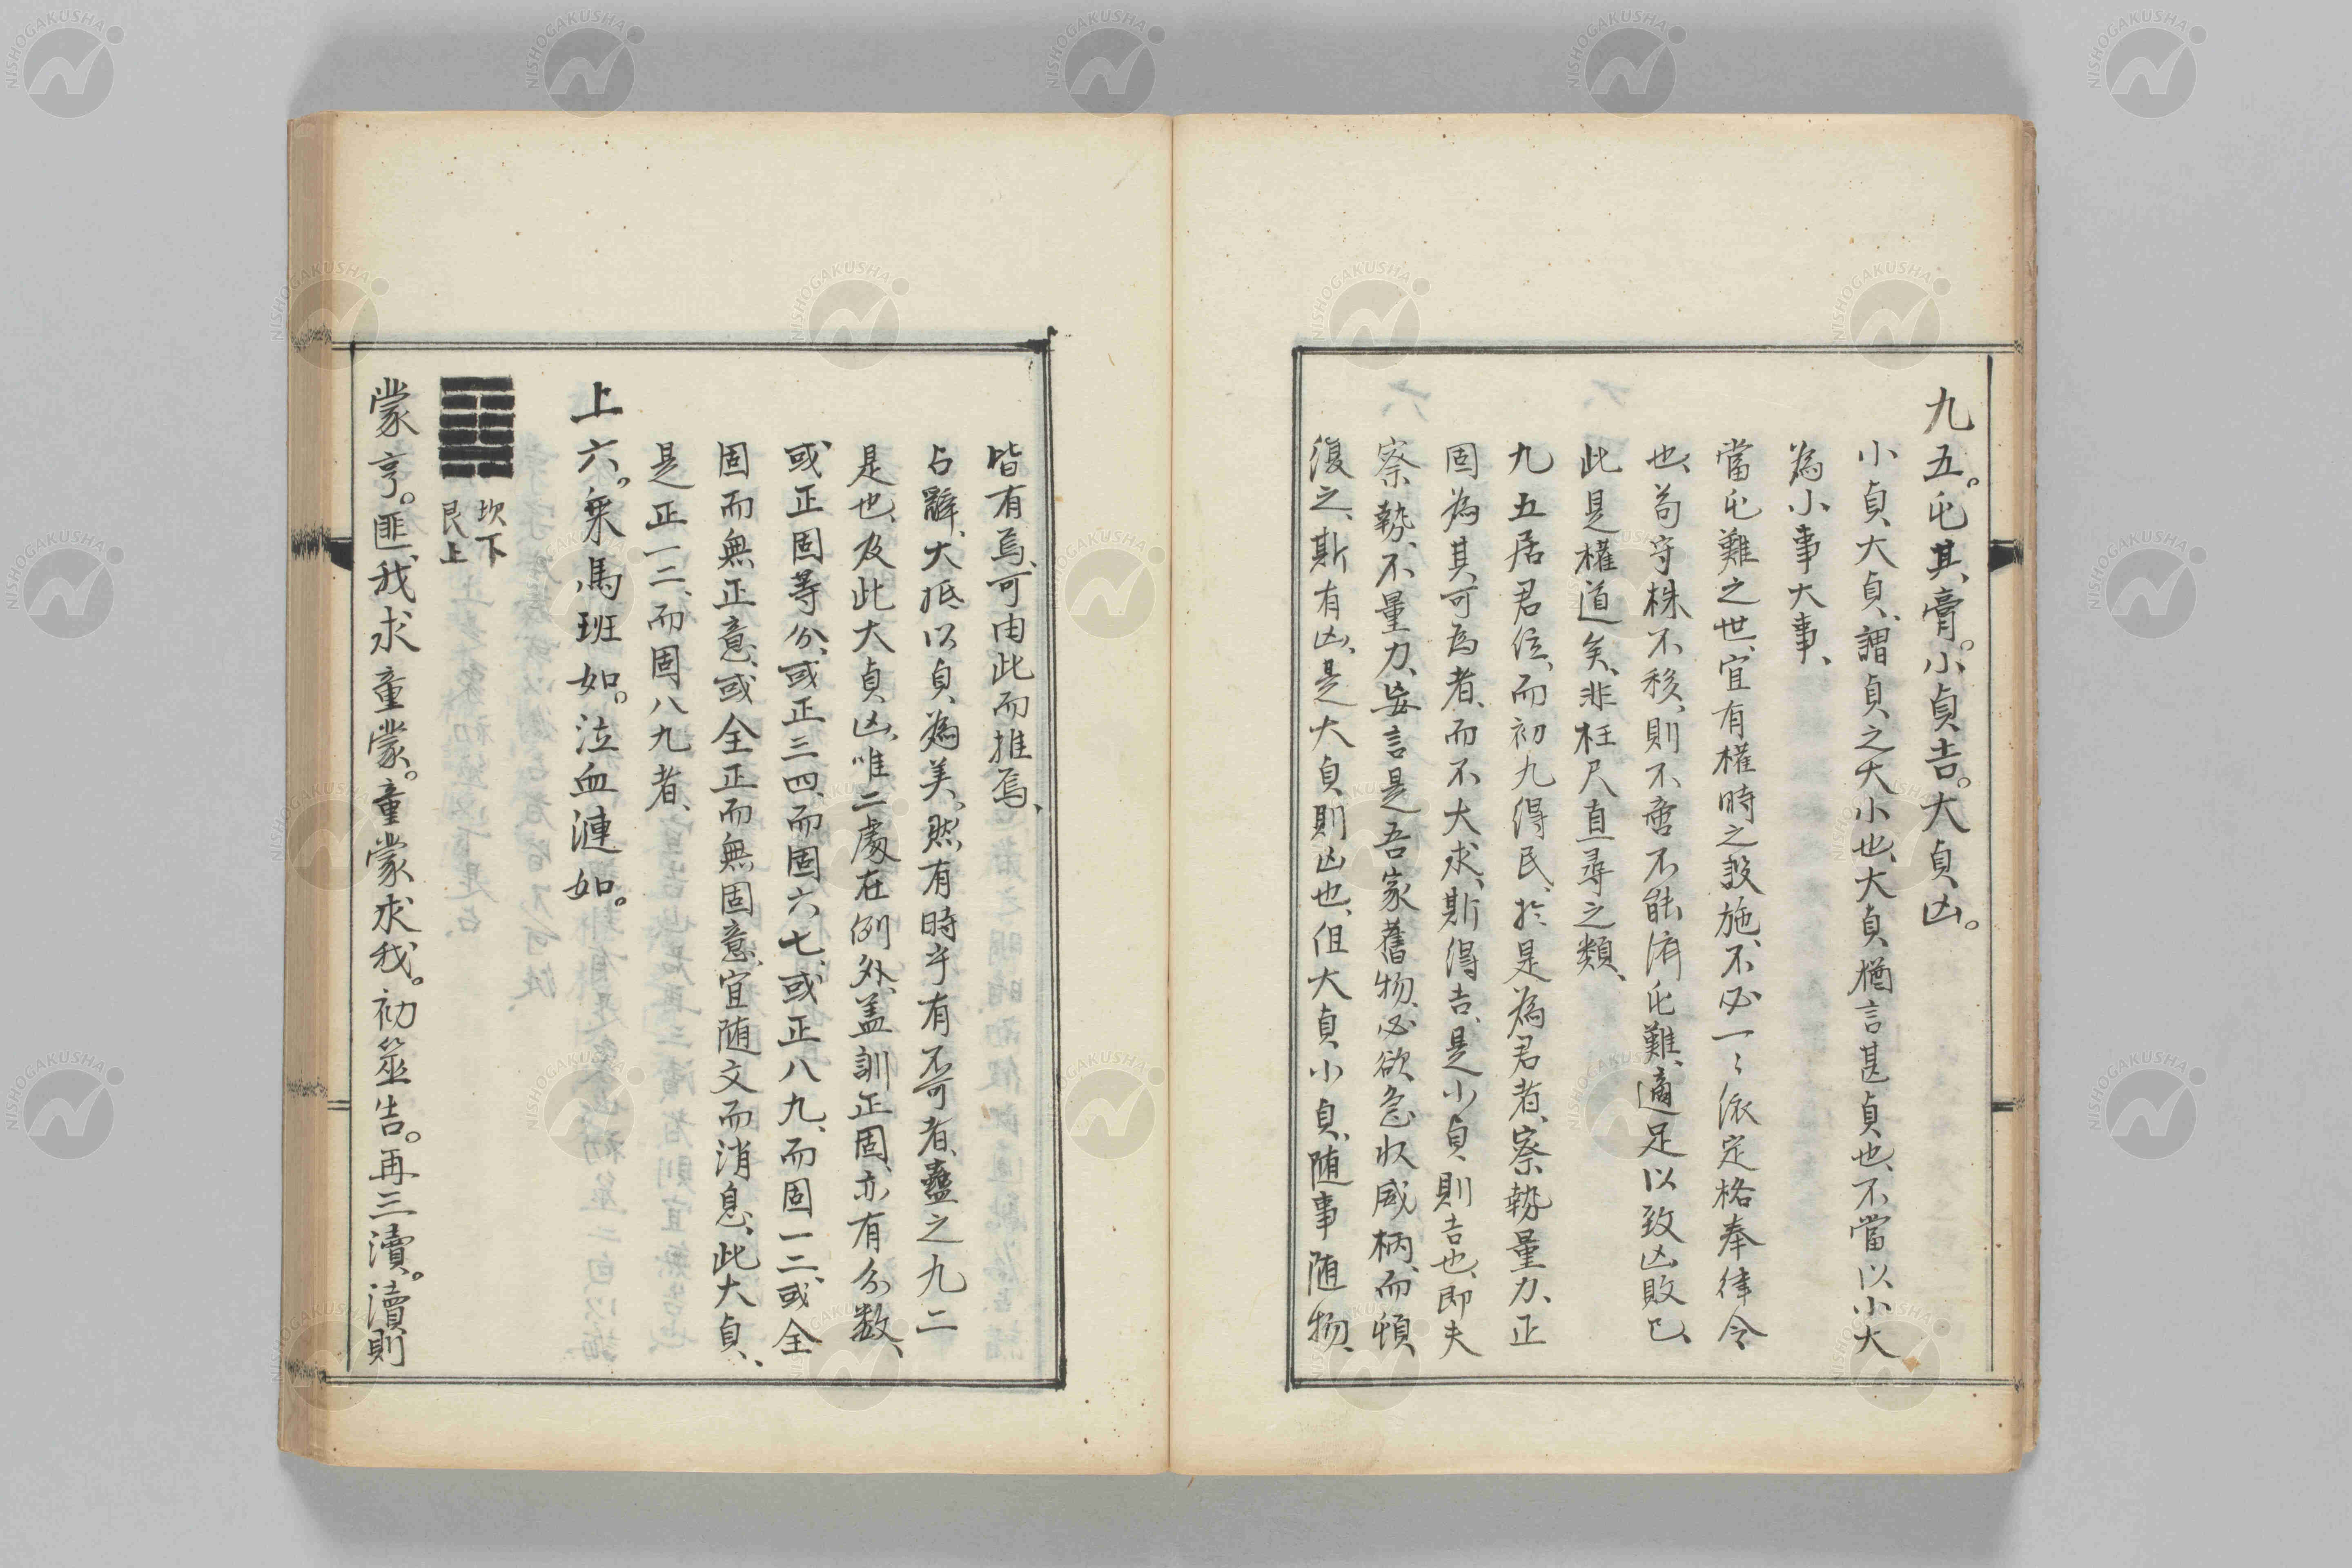 九五。屯其膏。小貞吉。大貞凶。
小貞大貞、謂貞之大小也、大貞猶言甚貞也、不當以小大
為小事大事、
當屯難之世、宜有權時之設施、不必一〻依定格奉律令
也、苟守株不移、則不啻不能濟屯難、適足以致凶敗已、
此是權道矣、非枉尺直尋之類、
九五居君位、而初九得民、於是為君者、察勢量力、正
固為其可為者、而不大求、斯得吉、是小貞則吉也、即夫
察勢、不量力、妄言是吾家舊物、必欲急収威柄、而頓
復之、斯有凶、是大貞則凶也、但大貞小貞、随事随物、
皆有焉、可由此而推焉、
占辭、大抵以貞為美。然有時乎有不可者、蠱之九二
是也、及此大貞凶、唯二處在例外、盖訓正固、亦有分数、
或正固等分、或正三四、而固六七、或正八九、而固一二、或全
固而無正意、或全正而無固意、宜随文而消息、此大貞、
是正一二、而固八九者、
上六。乗馬班如。泣血漣如。
坎下
艮上
蒙亨。匪我求童蒙。童蒙求我。初筮告。再三瀆。瀆則
NISHOGAKUSHA